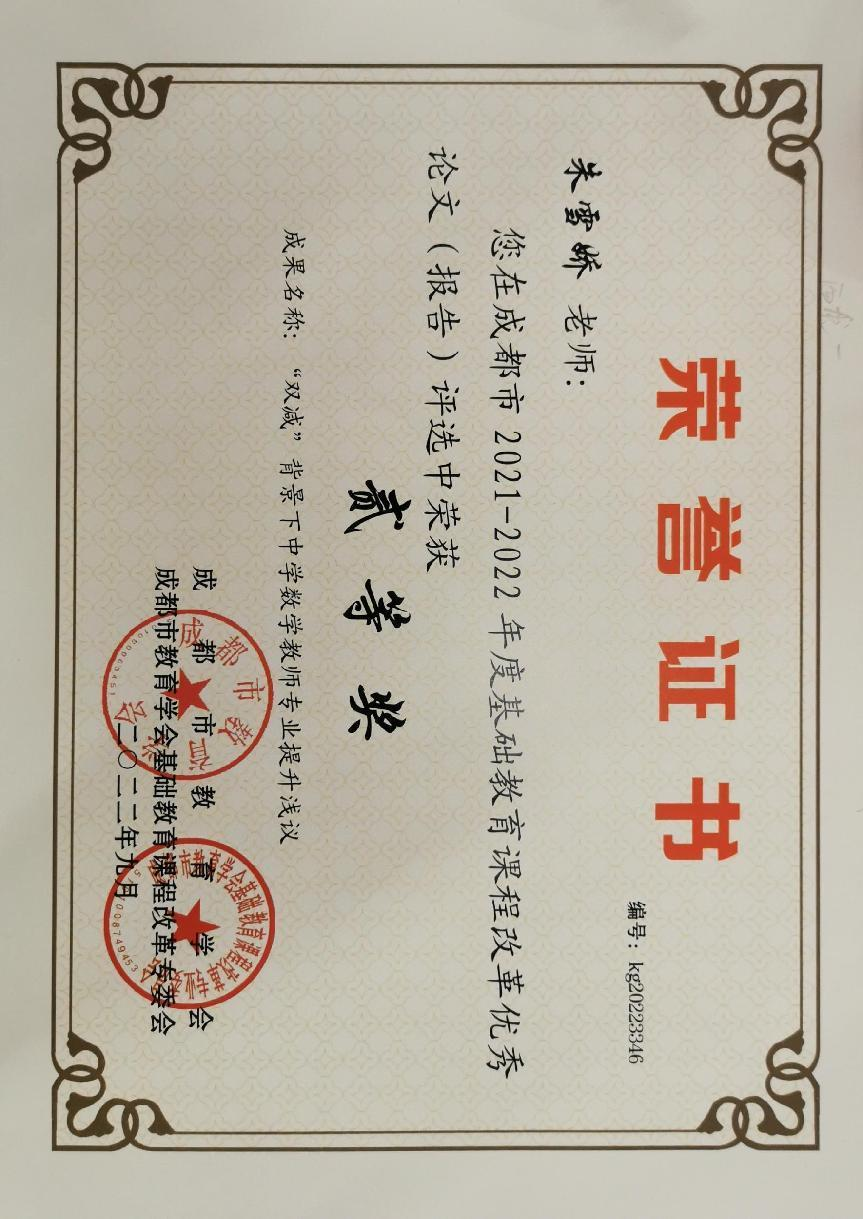 荣誉证书
编号：kg20223346
朱雪娇 老师：
您在成都市 2021-2022 年度基础教育课程改革优秀
论文（报告）评选中荣获
贰等奖
成果名称：“双减”背景下中学数学教师专业提升浅议
成都市教育学会
成都市教育学会基础教育课程改革专委会
二〇二二年九月